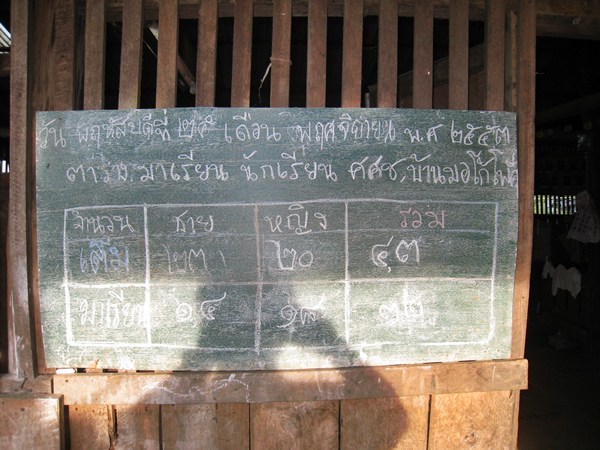 วัน พฤหัสบดีที่ ๒๕ เดือน พฤศจิกายน พ.ศ ๒๕๕๓
ตาราง มาเรียน นักเรียน ศศช. บ้านมอโก้
จำนวน ชาย หญิง รวม
เต็ม ๒๓ ๒๐ ๔๓
มาเรียน ๑๔ ๑๘ ๓๒